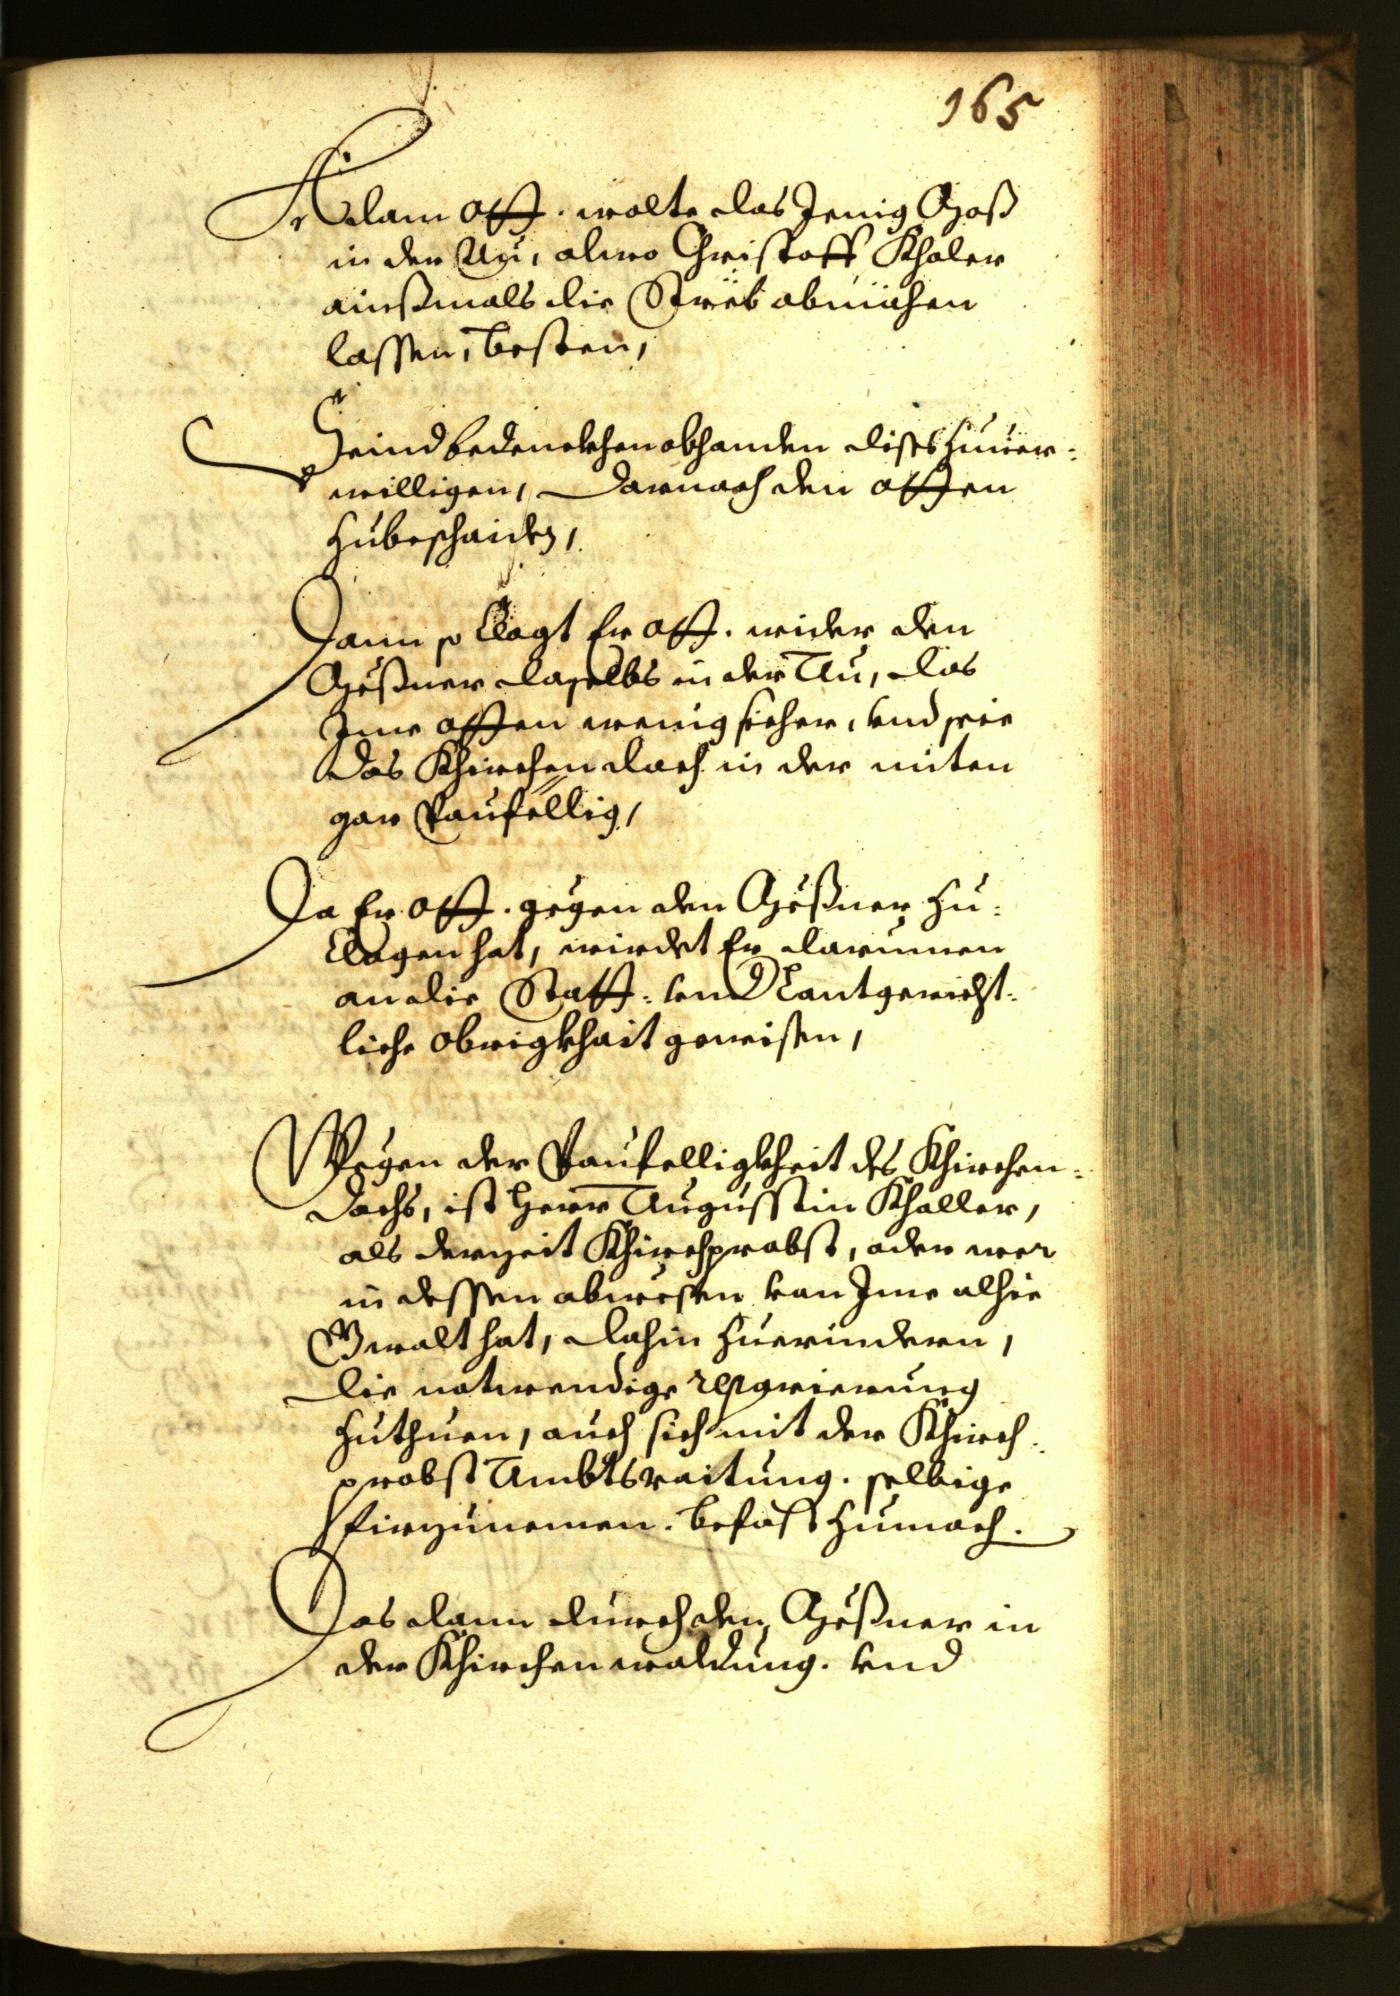 165
Adam Ott. wolte das Jenig Moß
in der Au, alwo Christoff Khaler
ainßmals die Strëb abmähen
lassen, besten,
Seind bedenckhen obhanden dises zuuer-
willigen, Darnach den Otten
zubeschaiden,
Dann so klagt Er Ott. wider den
Mëßner daselbs in der Au, das
Ime Otten wenig sicher, vnd seie
das Khirchendach in der miten
gar Paufellig,
Da Er Ott. gegen den Mëßner zu-
klagen hat, wirdet Er darumen
an die Statt- vnd Lantgericht-
liche Obrigkhait gewisen,
Wegen der Paufelligkheit des Khirchen-
dachs, ist herr Augusstin Khaller,
als derzeit Khirchprobst, oder wer
in dessen abwesen von Ime alhie
Gwalt hat, dahin zuerindern,
die notwendige reparierung
zuthuen, auch sich mit der Khirch-
probst Ambtsraitung. selbige
firzunemen. befasst zumach.
Das dann durch den Mëßner in
der Khirchenwaldung. vnd